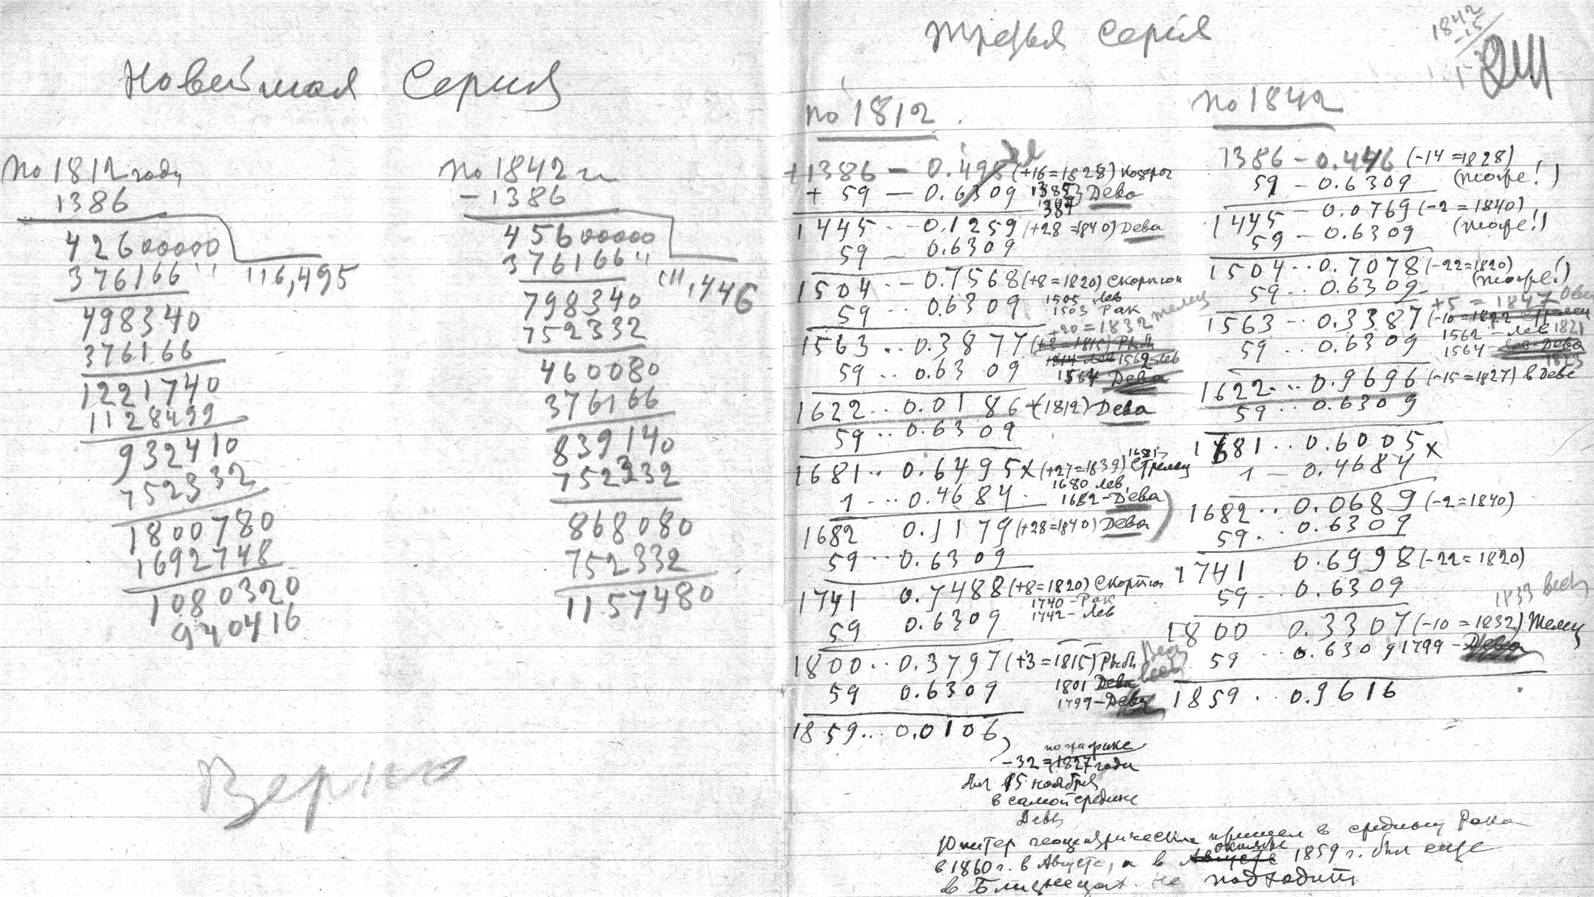 Новейшая Серия
по 1812 году
1386
42600000
376166
116,495
498340
376166
1221740
1128499
932410
752332
1800780
1692748
1080320
940416
по 1842 г
– 1386
45600000
376166
111,446
798340
752332
460080
376166
839140
752332
868080
752332
1157480
Верно
Третья Серия
1842
–15
по 1812.
+1386 – 0.498 (+16=1828) козерог
+ 59 – 0.6309 1385 Дева
387
1445 – 0.1259 (+28=1840) Дева
59 – 0.6309
1504 – 0.7568 (+8=1820) Скорпион
59 – 0.6309 1505 лев
1503 Рак
+20=1832 телец
1563 .. 0.3877 (+3=1815) Рыб
59 .. 0.6309 1814 лев 1562 лев
1564 Дева
1622 .. 0.0186 (1812) Дева
59 .. 0.6309
1681 .. 0.6495 x (+27=1839) Стрелец
1680 лев,
1 ... 0.4684 1682 – Дева
1682 0.1179 (+28=1840) Дева
59 ... 0.6309
1741 0.7488 (+8=1820) Скорпион
1740 – Рак
59 0.6309 1742 – Лев
1800 .. 0.3797 (+3=1815) Рыб
59 0.6309 1801 Дева весы
1799 – Дева
1859 ... 0.0106
по графике
–32=1827 годы
для 15 ноября
в самой средине
Девы
по 1842
1386 – 0.446 (–14=1828)
59 – 0.6309 (тоже!)
1445 – 0.0769 (–2=1840)
59 – 0.6309 (тоже!)
1504 .. 0.7078 (–22=1820)
59 .. 0.6309 (тоже!)
+5=1847 Овен
1563 – 0.3387 (–10=1822 Стрелец
59 .. 0.6309 1562 – лев 1821
1564 – Дева
1823
1622 ... 0.9696 (–15=1827) в Деве
59 .. 0.6309
1681 .. 0.6005 x
1 – 0.4684
1682 .. 0.0689 (–2=1840)
59 .. 0.6309
1741 0.6998 (–22=1820)
59 .. 0.6309
1833 весы
1800 0.3307 (–10=1832) Телец
59 0.6309 1799 – Дева
1859 .. 0.9616
Юпитер геоцентрически пришел в средину Рака
октябре
в 1860 г. в Августе, а в Августе 1859 г. был еще
в Близнецах. не подходит